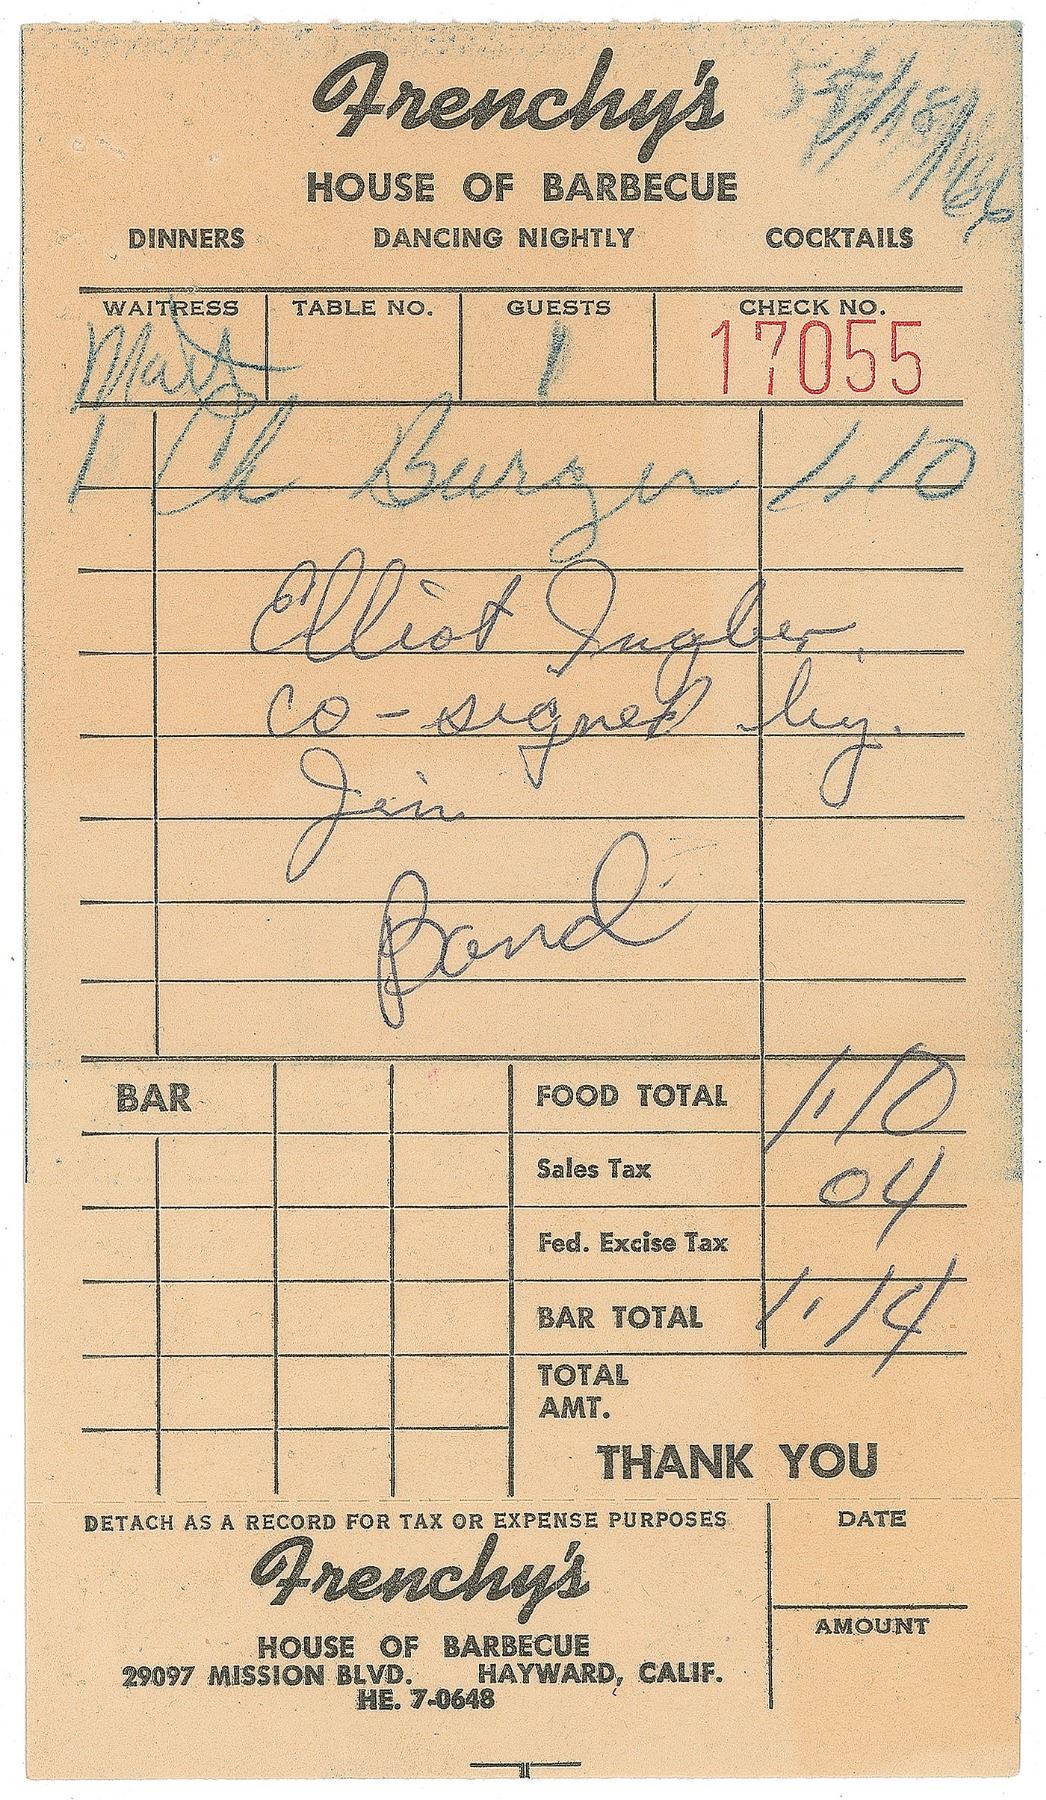 Frenchy's
HOUSE OF BARBECUE
DINNERS DANCING NIGHTLY COCKTAILS
WAITRESS TABLE NO. GUESTS CHECK NO.
1 17055
1 Ch Burger 1.10
Elliot Ingber
co-signed by.
Jim
Bond
BAR FOOD TOTAL 1.10
Sales Tax 04
Fed. Excise Tax
BAR TOTAL 1.14
TOTAL
AMT.
THANK YOU
DETACH AS A RECORD FOR TAX OR EXPENSE PURPOSES DATE
Frenchy's
HOUSE OF BARBECUE AMOUNT
29097 MISSION BLVD. HAYWARD, CALIF.
HE. 7-0648